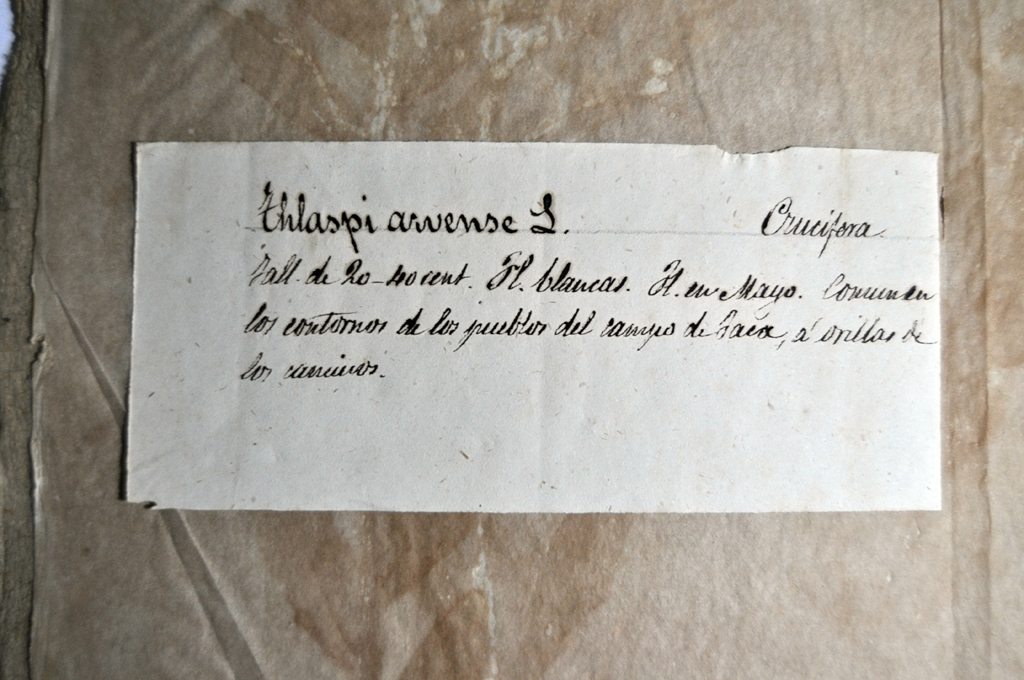 Thlaspi arvense L. Crucifera.
Tall. de 20-40 cent. Fl. blancas. Fl. en Mayo. Comun en
los contornos de los pueblos del campo de Jaca, á orillas de
los caminos.